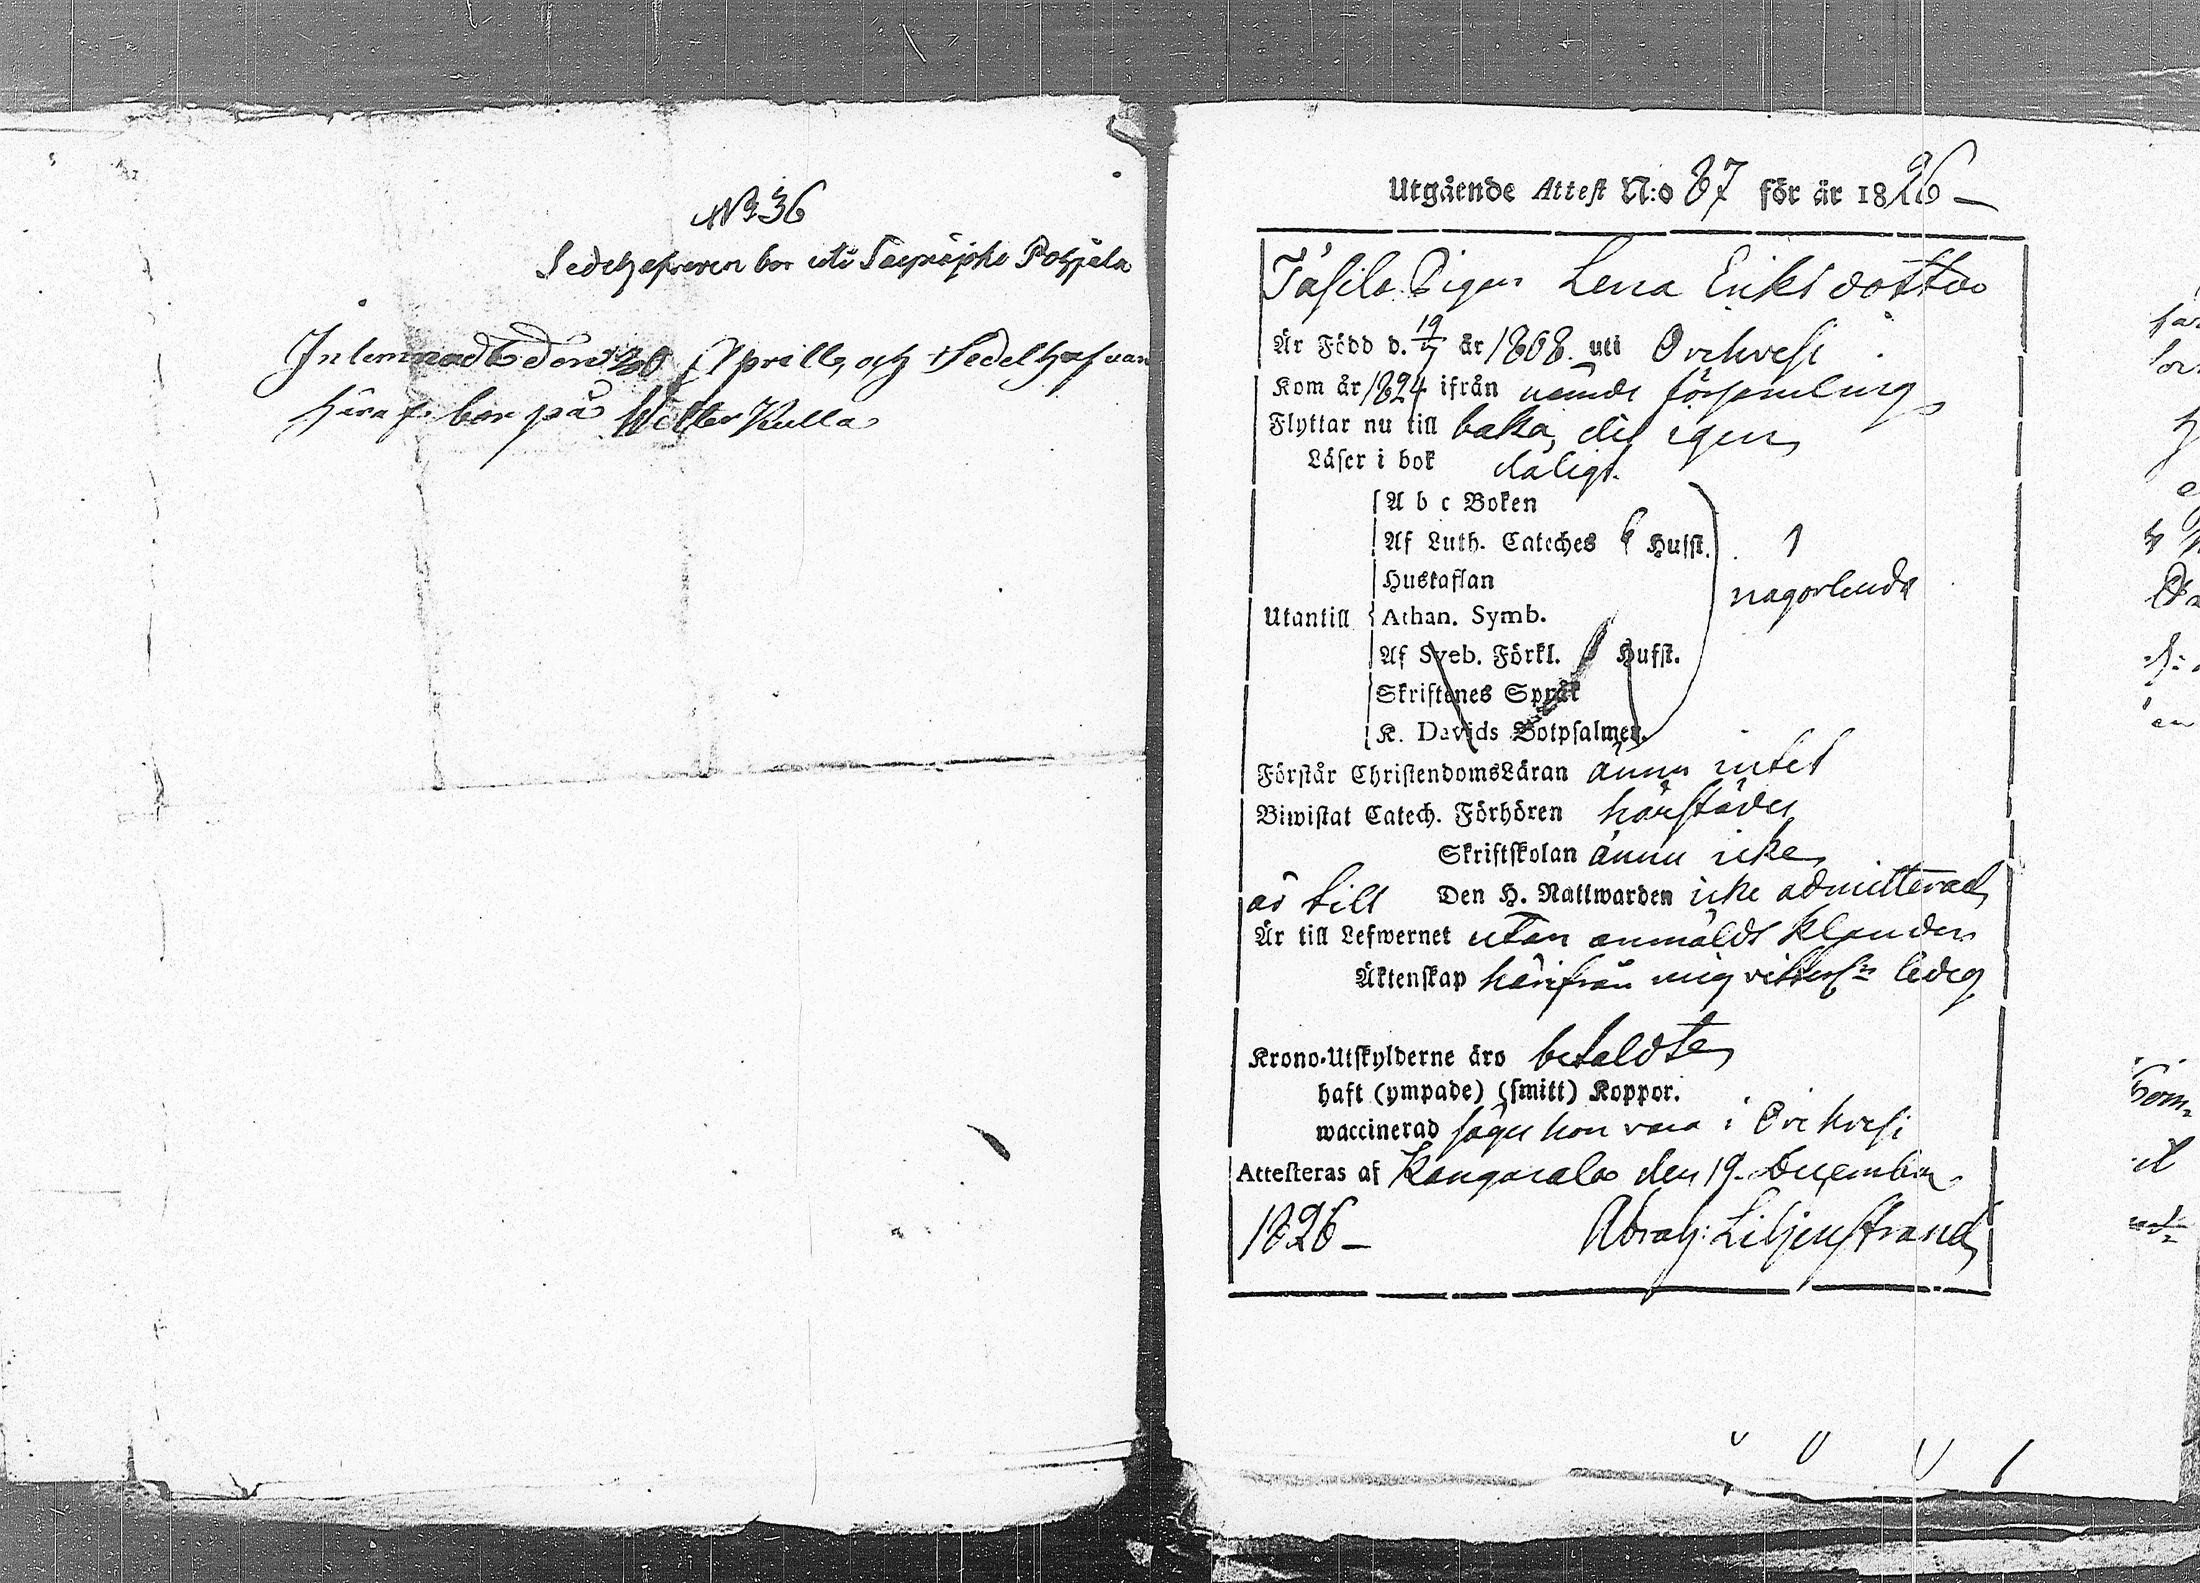 No 36
Sedelhafveren bor uti Pohjala
Inlemnadt den 30 Aprill, och Sedelhafvan
häraf bor på Wester Kulla
Utgående Attest N:o 87 för år 1826 –
Pigan Lena Eriksdotter
Är Född d. 19/7 år 1808. uti Orihvesi
Kom år 1824 ifrån nämde församling
Flyttar nu till baka dit igen
Läser i bok dåligt.
A b c Boken
Af Luth. Cateches 6 Hufst.
Hustaflan
någorlunda
Utantill Athan. Symb.
Af Sveb. Förkl. Hufst.
Skriftenes Språk
K. Davids Botpsalmer.
Förstår ChristendomsLäran ännu intet
Biwistat Catech. Förhören härstädes
Skriftskolan ännu icke
är till Den H. Nattwarden icke admitterad
Är till Lefwernet utan anmäldt klander
Äktenskap härifrån mig vitterl:n ledig
Krono-Utskylderne äro betaldte
haft (ympade) (smitt) Koppor.
waccinerad säges hon vara i Orihvesi
Attesteras af Kangasala den 19. December
1826 – Abrah: Liljenstrand